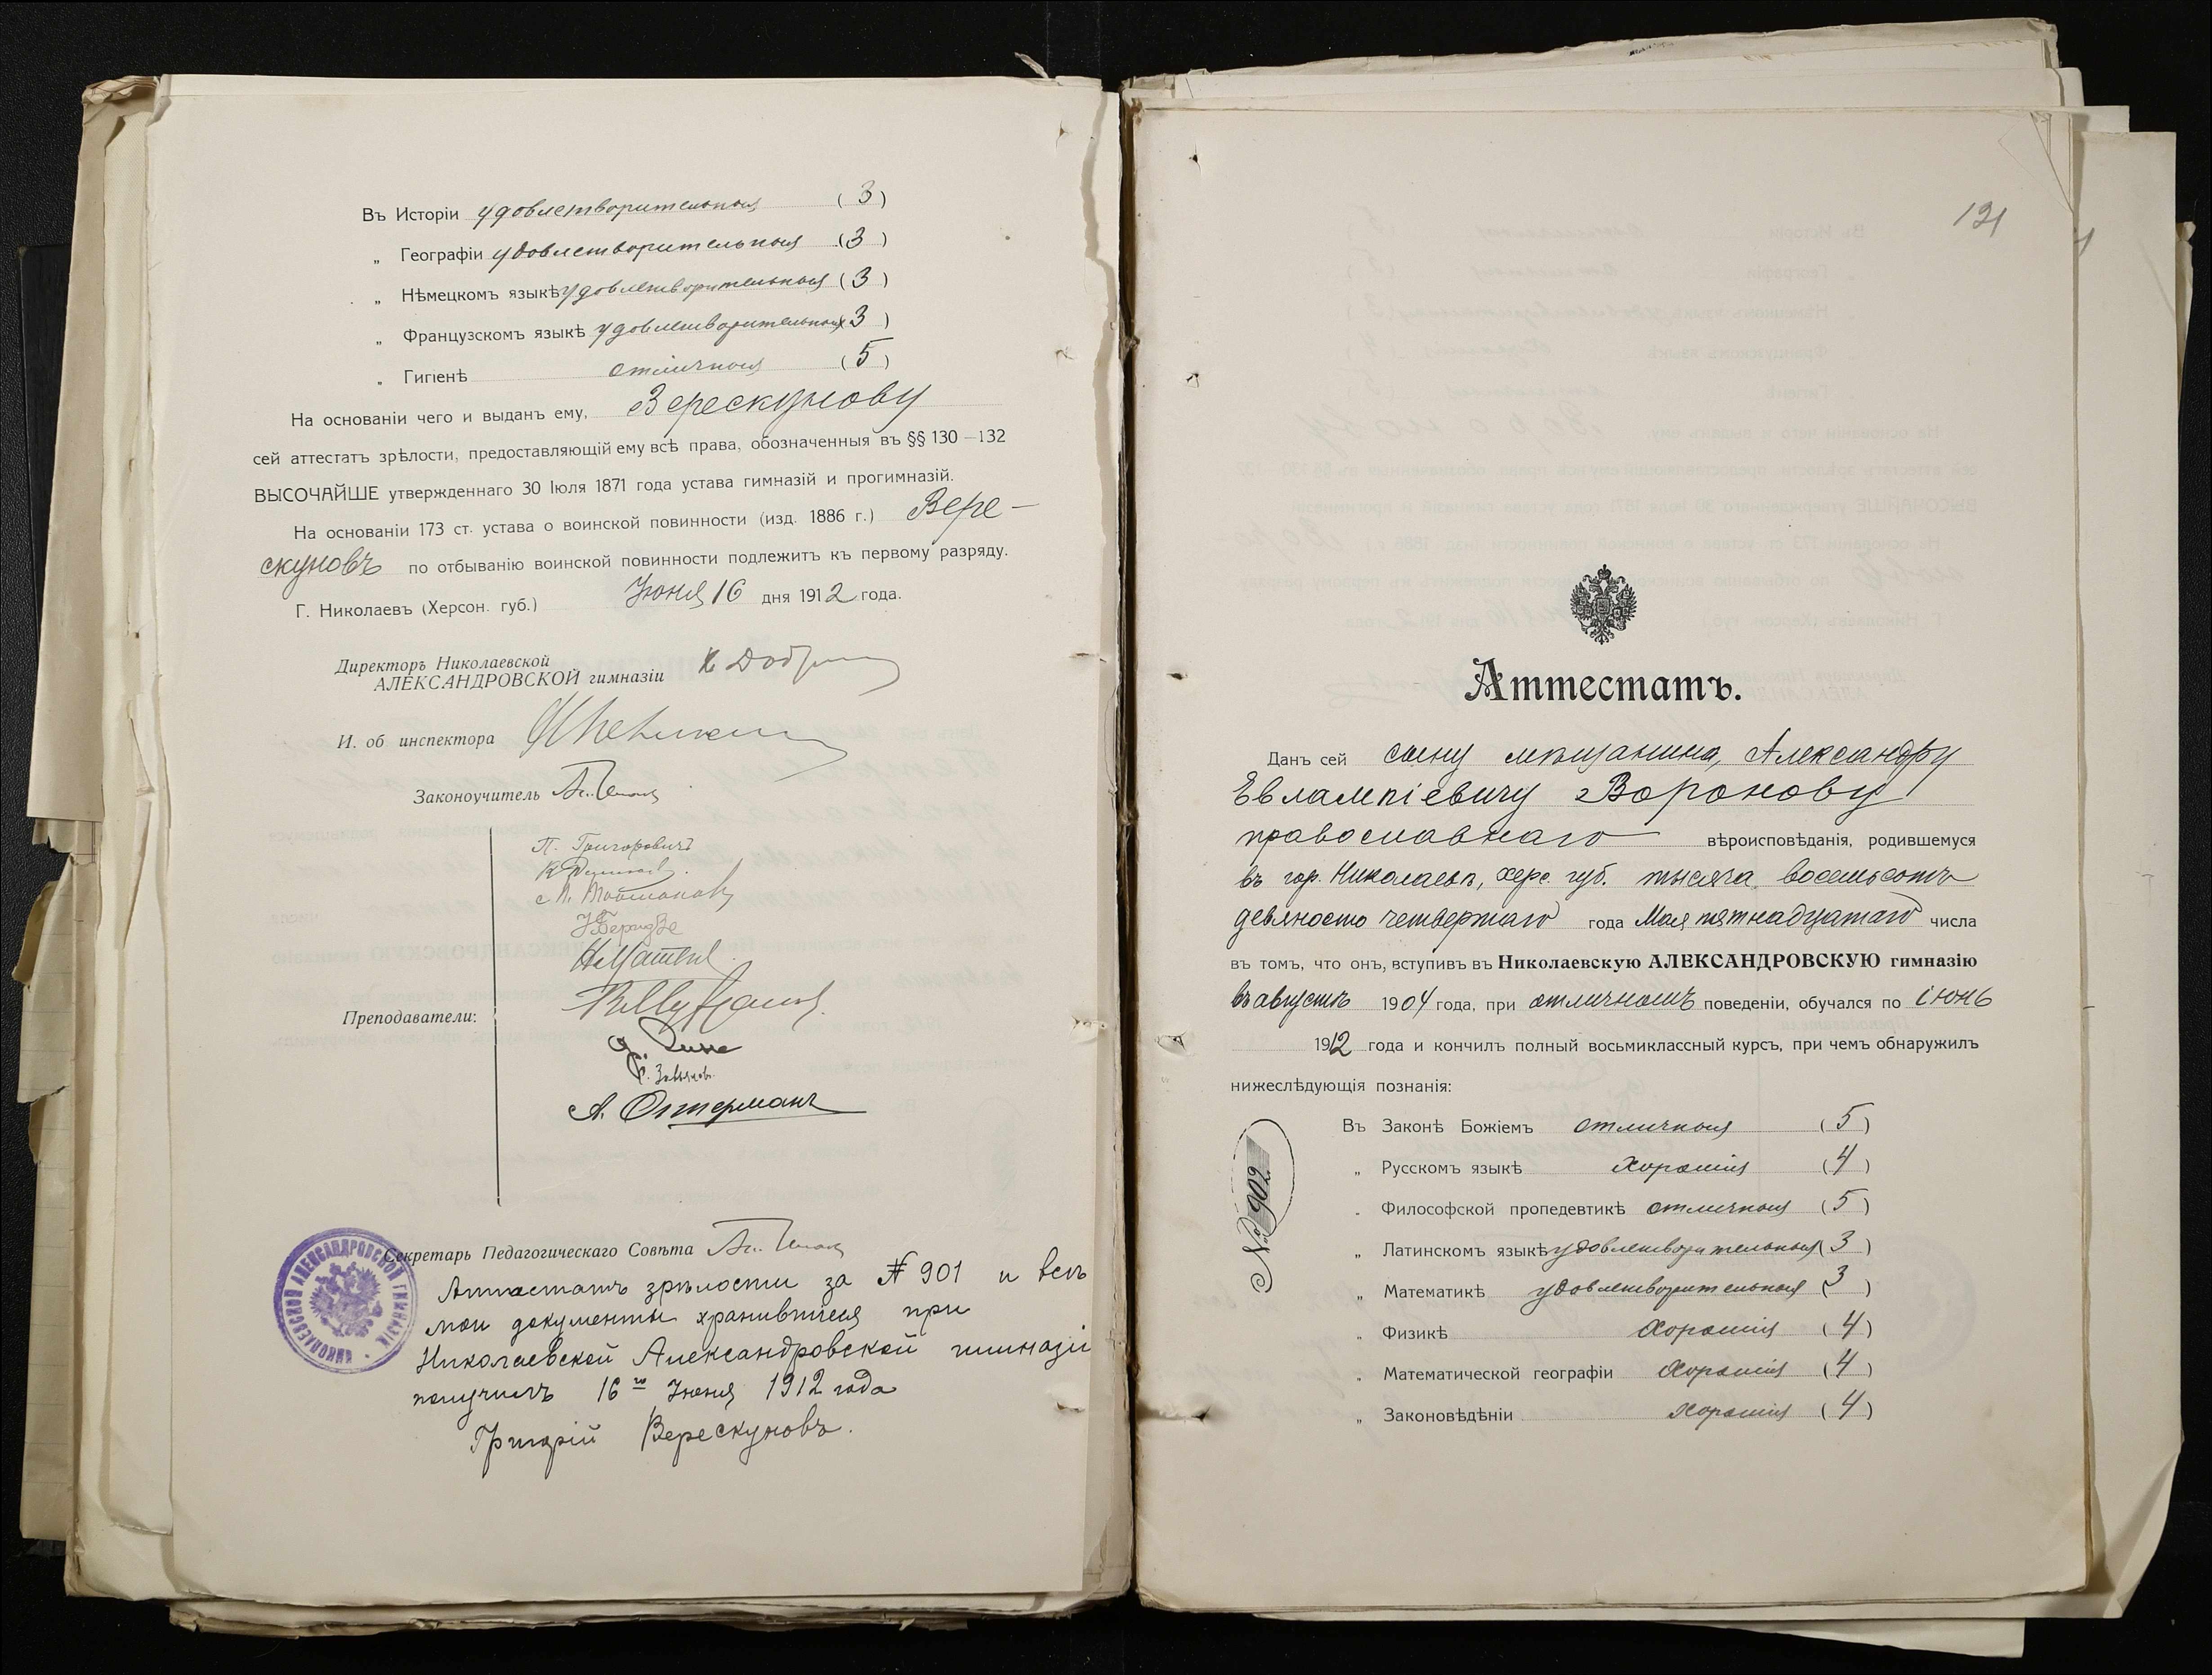 Въ Исторіи удовлетворительныя (3)
„ Географіи удовлетворительныя (3)
„ Нѣмецкомъ языкѣ удовлетворительныя (3)
„ Французскомъ языкѣ удовлетворительныя (3)
„ Гигіенѣ отличныя (5)
На основаніи чего и выданъ ему, Верескунову
сей аттестатъ зрѣлости, предоставляющій ему всѣ права, обозначенныя въ §§ 130—132
ВЫСОЧАЙШЕ утвержденнаго 30 Іюля 1871 года устава гимназій и прогимназій.
На основаніи 173 ст. устава о воинской повинности (изд. 1886 г.) Вере-
скуновъ по отбыванію воинской повинности подлежитъ къ первому разряду.
Г. Николаевъ (Херсон. губ.) Іюня 16 дня 1912 года.
Директоръ Николаевской
АЛЕКСАНДРОВСКОЙ гимназіи
И. об инспектора
Законоучитель
П. Григоровичъ
Преподаватели:
А. Остерманъ
Секретарь Педагогическаго Совѣта
НИКОЛАЕВСКОЙ АЛЕКСАНДРОВСКОЙ ГИМНАЗІИ
Аттестатъ зрѣлости за № 901 и всѣ
мои документы хранившіеся при
Николаевской Александровской гимназіи
получилъ 16го Іюня 1912 года
Григорій Верескуновъ.
121
Аттестатъ.
Данъ сей сыну мѣщанина, Александру
Евлампіевичу Воронову
православнаго вѣроисповѣданія, родившемуся
въ гор. Николаевѣ, херс. губ. тысяча восемьсотъ
девяносто четвертаго года Мая пятнадцатаго числа
въ томъ, что онъ, вступивъ въ Николаевскую АЛЕКСАНДРОВСКУЮ гимназію
въ августѣ 1904 года, при отличномъ поведеніи, обучался по іюнь
1912 года и кончилъ полный восьмиклассный курсъ, при чемъ обнаружилъ
нижеслѣдующія познанія:
Въ Законѣ Божіемъ отличныя (5)
„ Русскомъ языкѣ хорошія (4)
„ Философской пропедевтикѣ отличныя (5)
„ Латинскомъ языкѣ удовлетворительныя (3)
„ Математикѣ удовлетворительныя (3)
„ Физикѣ хорошія (4)
„ Математической географіи хорошія (4)
„ Законовѣдѣніи хорошія (4)
№ 902